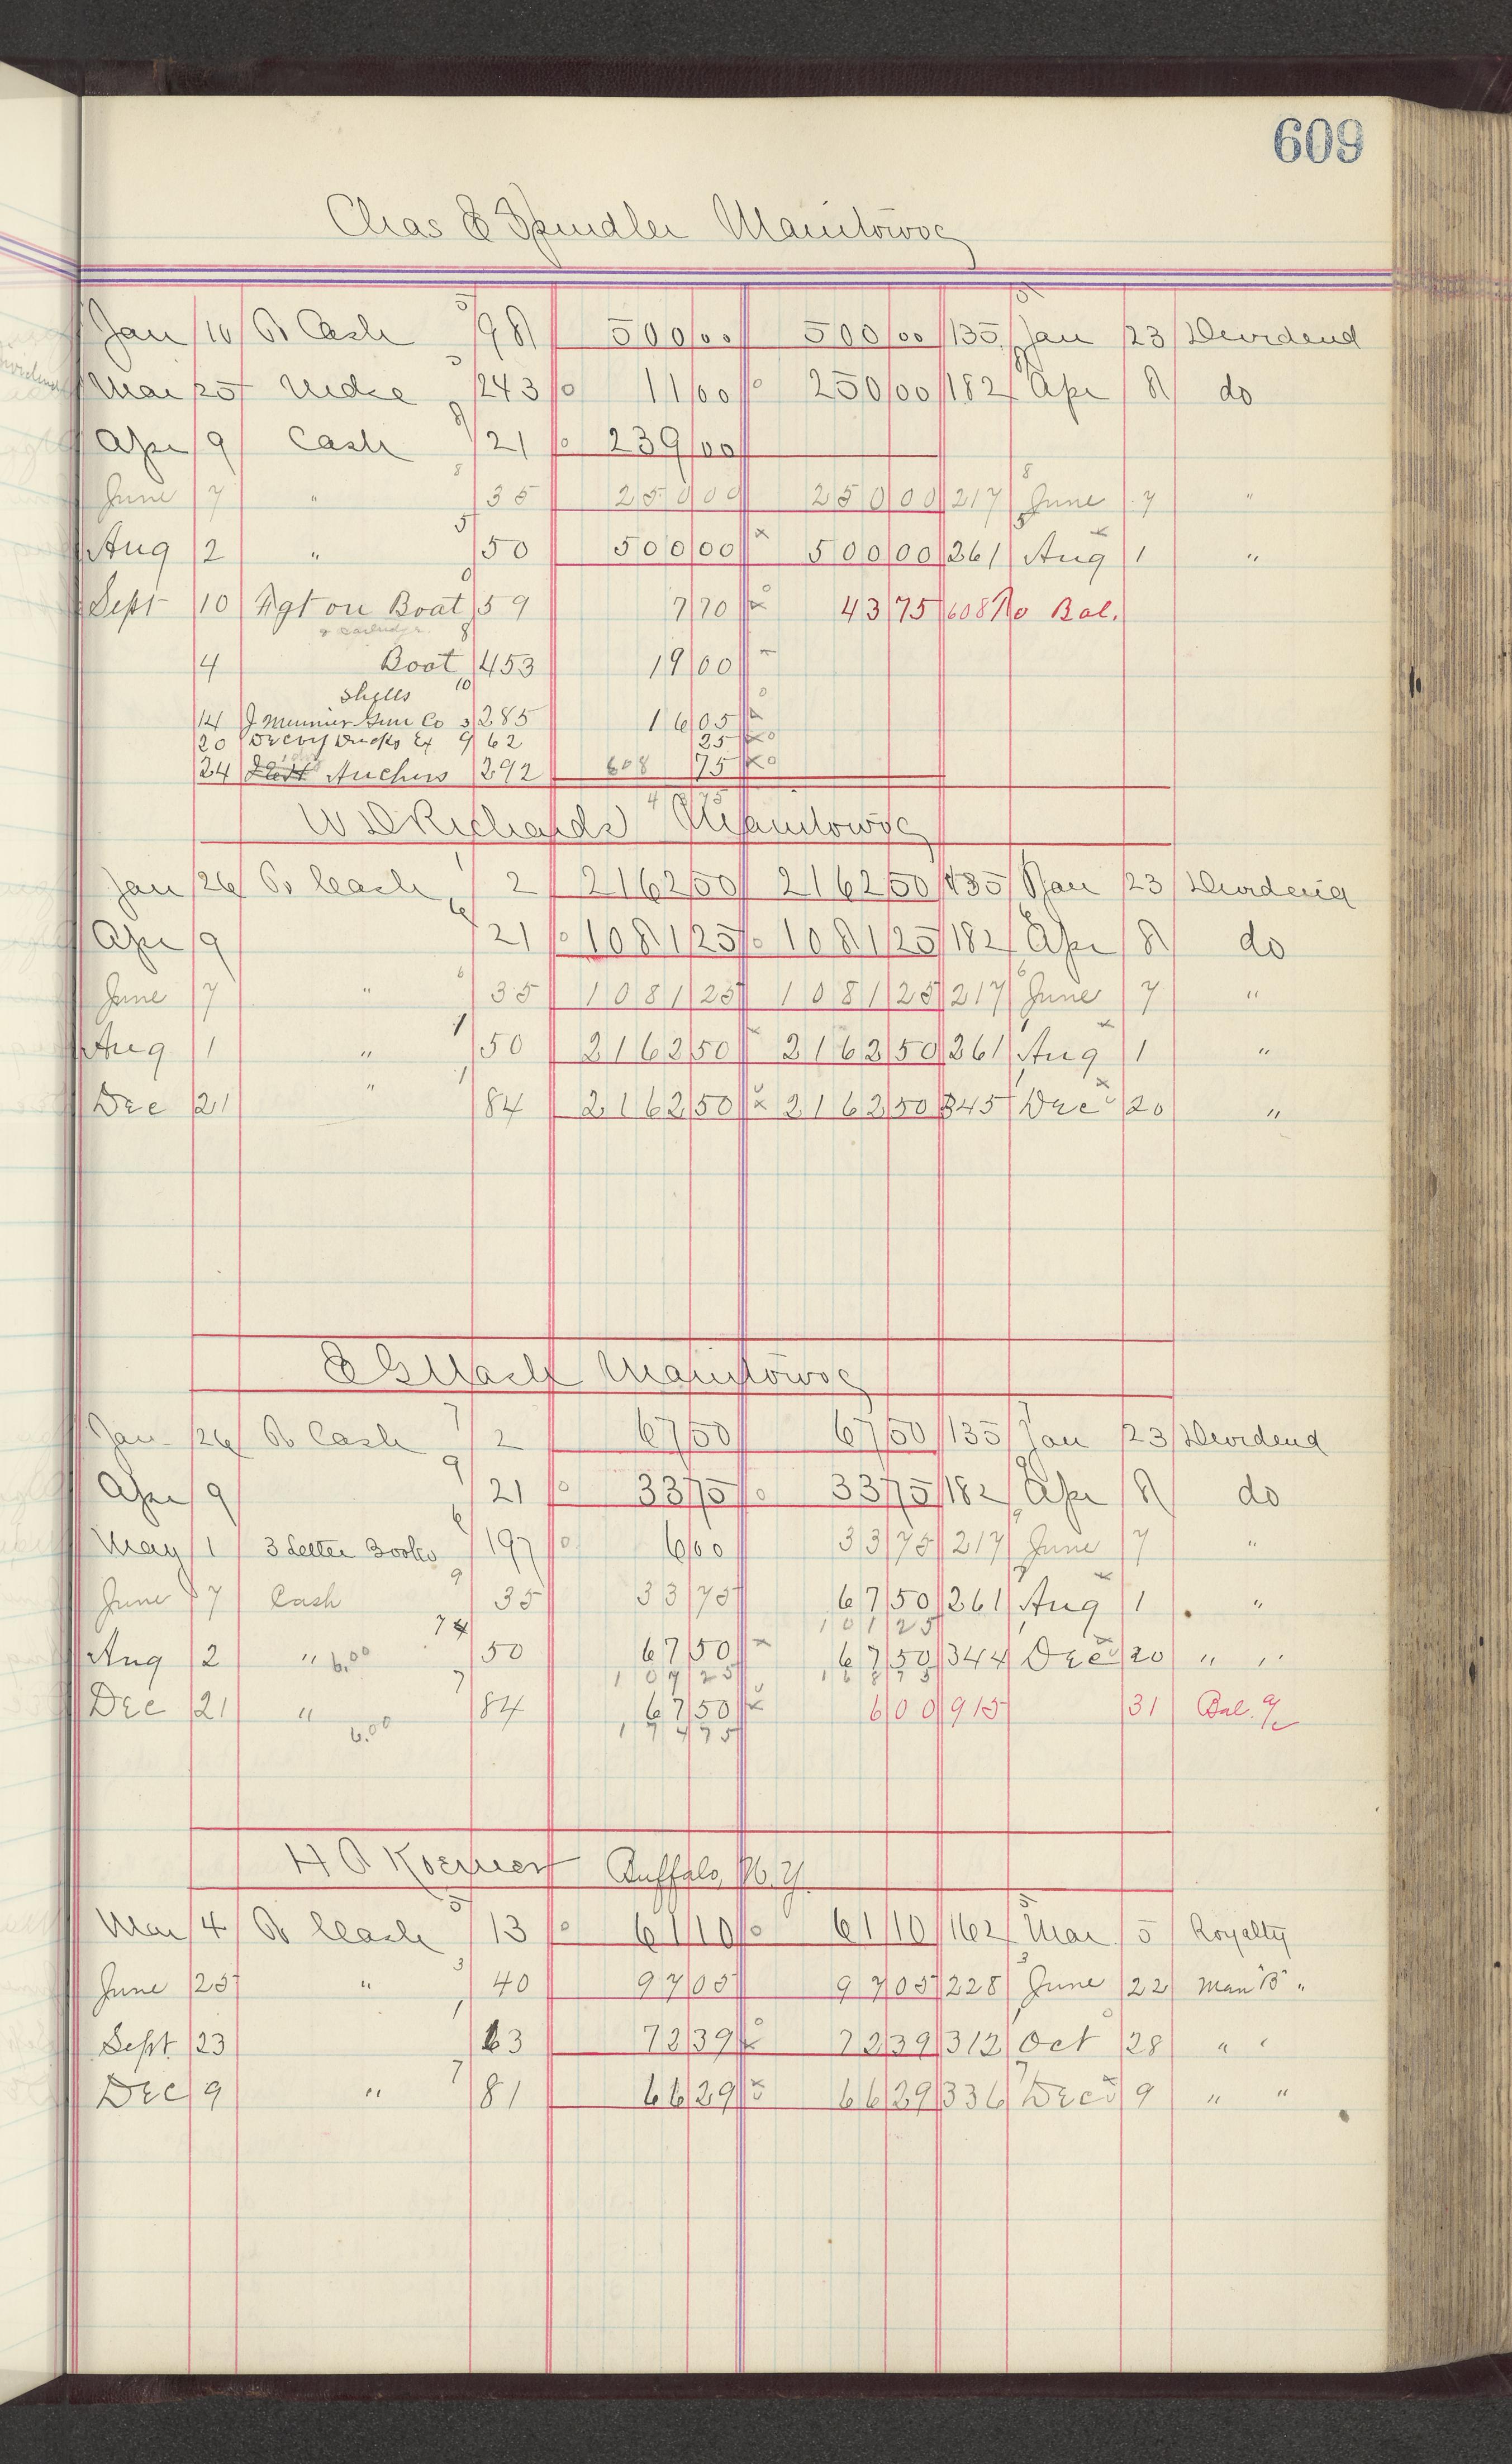 609
Chas E Spindler Manitowoc
Jan 10 To Cash 5 98 500 00 500 00 135 5 Jan 23 Dividend
Mar 25 Mdse 5 243 11 00 250 00 182 8 Apr 8 do
Apr 9 Cash 8 21 239 00
June 7 " 8 35 250 00 250 00 217 8 June 7 "
Aug 2 " 5 50 500 00 500 00 261 5 Aug 1 "
Sept 10 Fgt on Boat 0 59 7 70 43 75 608 To Bal.
4 Boat 8 453 19 00
Shells
14 J Meunier Gun Co 3 285 16 05
20 Decoy Ducks Ex 9 62 25
24 Anchors 292 608 75
43 75
W D Richards Manitowoc
Jan 26 To Cash 1 2 2162 50 2162 50 135 Jan 23 Dividend
Apr 9 6 21 1081 25 1081 25 182 6 Apr 8 do
June 7 " 6 35 1081 25 1081 25 217 6 June 7 "
Aug 1 " 1 50 2162 50 2162 50 261 1 Aug 1 "
Dec 21 " 1 84 2162 50 2162 50 345 1 Dec 20 "
E G Nash Manitowoc
Jan 26 To Cash 7 2 67 50 67 50 135 7 Jan 23 Dividend
Apr 9 9 21 33 75 33 75 182 9 Apr 8 do
May 1 3 Letter Books 6 197 6 00 33 75 217 9 June 7 "
June 7 Cash 9 35 33 75 67 50 261 7 Aug 1 "
101 25
Aug 2 " 6.00 7 50 67 50 67 50 344 Dec 20 " "
107 25 168 75
Dec 21 " 7 84 67 50 6 00 915 31 Bal. a/c
6.00 174 75
H A Koerner Buffalo, N.Y.
Mar 4 To Cash 5 13 61 10 61 10 162 5 Mar 5 Royalty
June 25 " 3 40 97 05 97 05 228 3 June 22 Man "B" "
Sept. 23 1 63 72 39 72 39 312 Oct 28 " "
Dec 9 " 7 81 66 29 66 29 336 7 Dec 9 " "